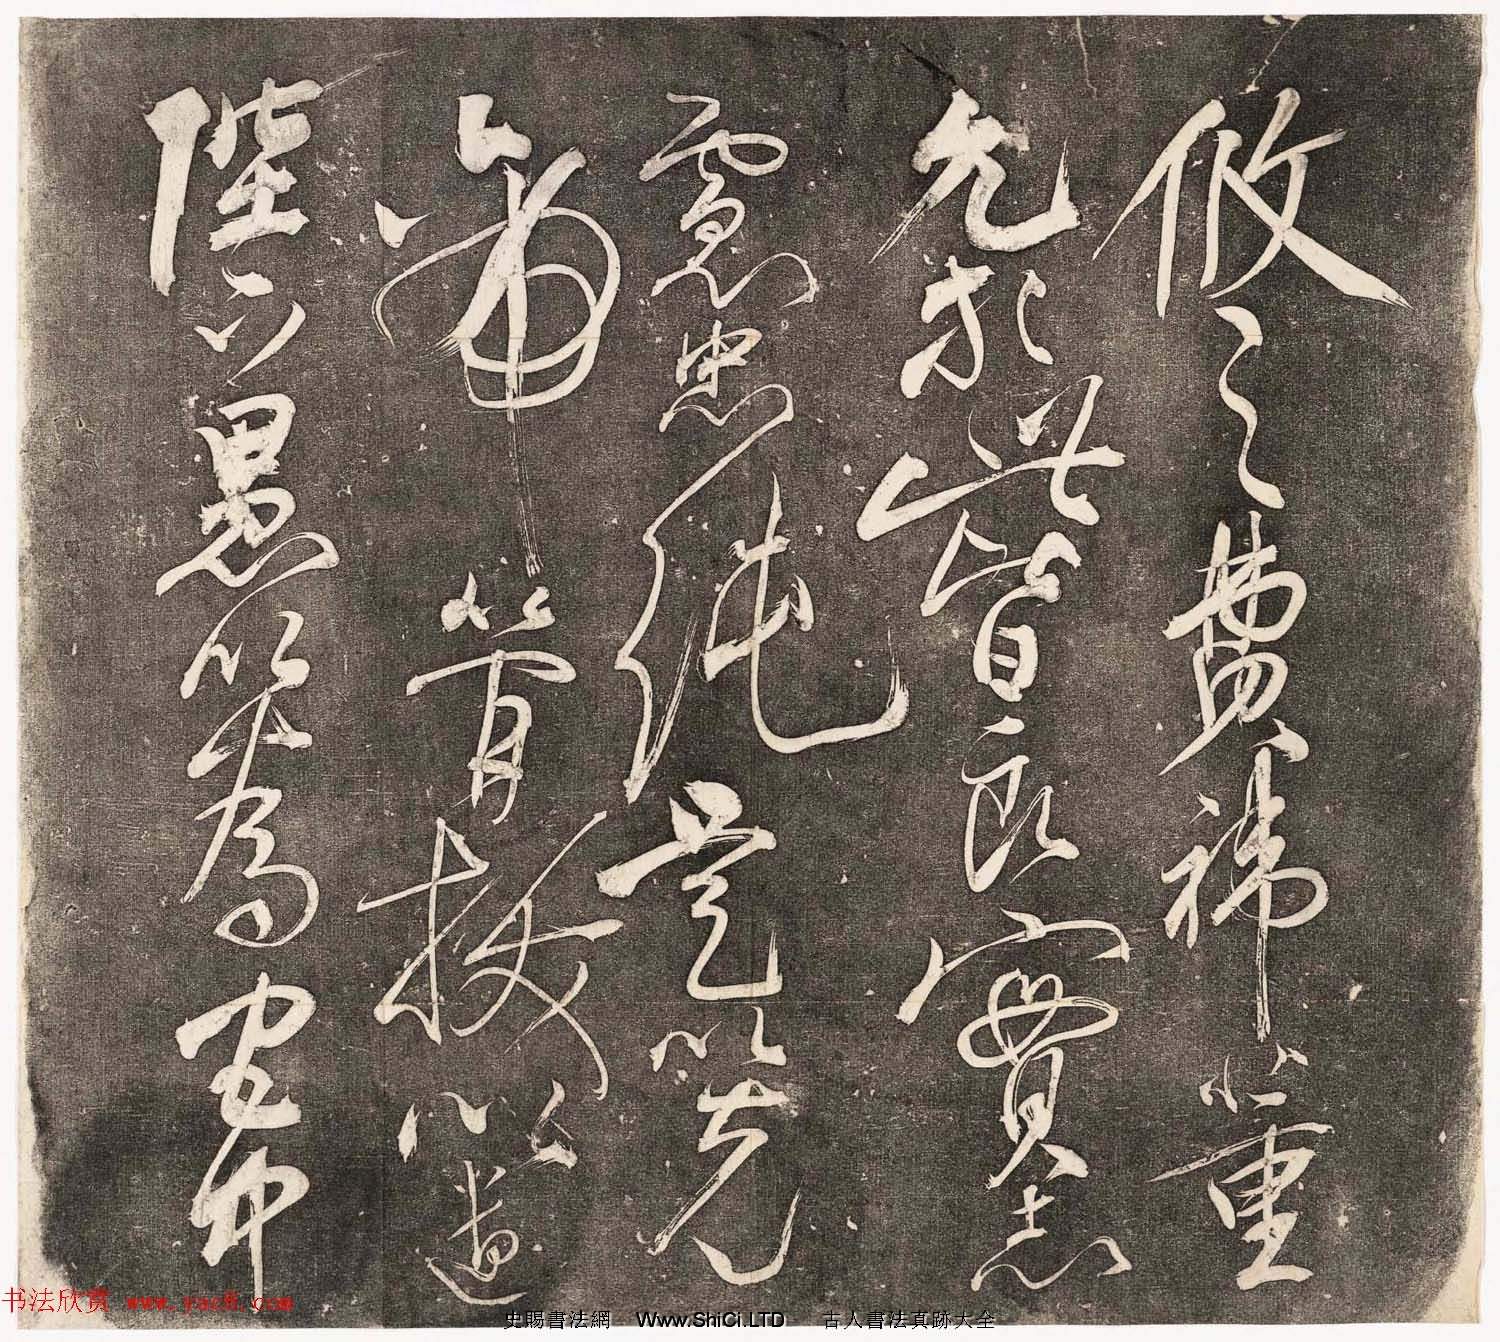 攸之費禕董
允等此皆良實志
慮忠純是以先
帝簡拔以遺
陛下愚以為宮中
书法欣赏 www.yac8.com
史賜書法網 Www.ShiCi.LTD 古人書法真跡大全